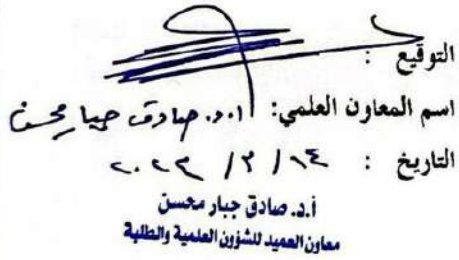 التوقيع :
اسم المعاون العلمي: ا.د. صادق جبار محسن
التاريخ : ١٤ / ٣ / ٢٠٢٣
أ.د. صادق جبار محسن
معاون العميد للشؤون العلمية والطلبة